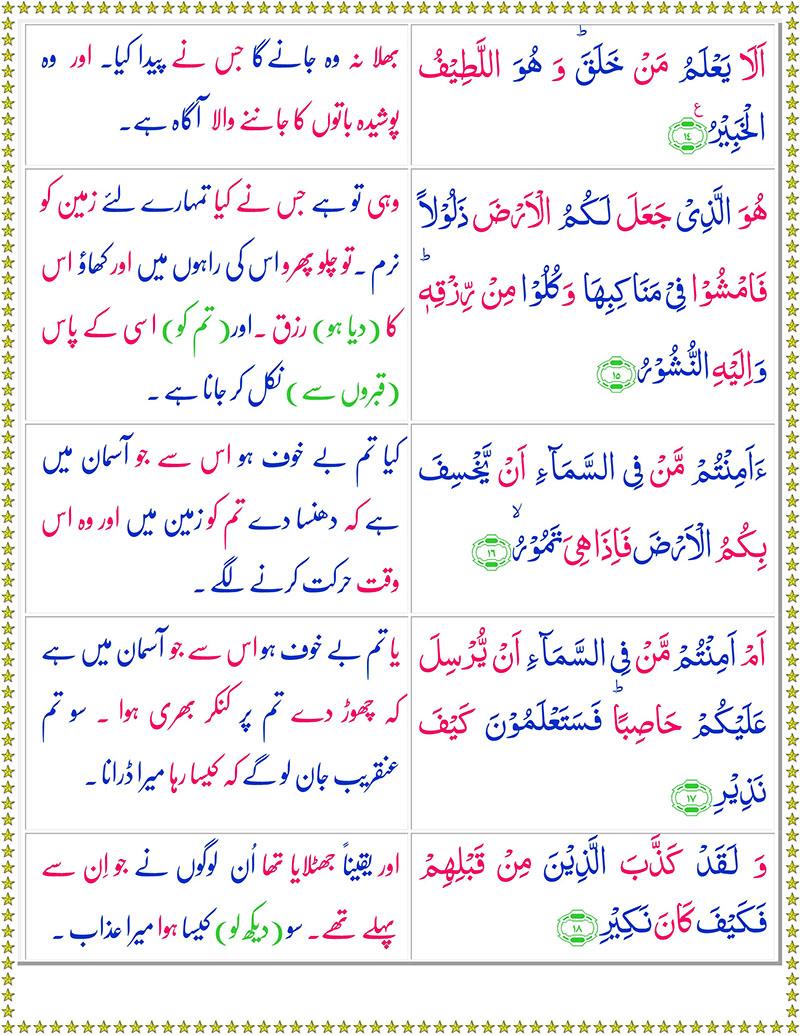 اَلَا یَعْلَمُ مَنْ خَلَقَ ؕ وَ هُوَ اللَّطِیْفُ
الْخَبِیْرُ ﴿۱۴﴾ ع
بھلا نہ وہ جانے گا جس نے پیدا کیا۔ اور وہ
پوشیدہ باتوں کا جاننے والا آگاہ ہے۔
هُوَ الَّذِیْ جَعَلَ لَكُمُ الْاَرْضَ ذَلُوْلًا
فَامْشُوْا فِیْ مَنَاكِبِهَا وَكُلُوْا مِنْ رِّزْقِهٖ ؕ
وَاِلَیْهِ النُّشُوْرُ ﴿۱۵﴾
وہی تو ہے جس نے کیا تمہارے لئے زمین کو
نرم ۔ تو چلو پھرو اس کی راہوں میں اور کھاؤ اس
کا (دیا ہو) رزق ۔ اور (تم کو) اسی کے پاس
(قبروں سے) نکل کر جانا ہے ۔
ءَاَمِنْتُمْ مَّنْ فِی السَّمَآءِ اَنْ یَّخْسِفَ
بِكُمُ الْاَرْضَ فَاِذَا هِیَ تَمُوْرُ ۙ ﴿۱۶﴾
کیا تم بے خوف ہو اس سے جو آسمان میں
ہے کہ دھنسا دے تم کو زمین میں اور وہ اس
وقت حرکت کرنے لگے ۔
اَمْ اَمِنْتُمْ مَّنْ فِی السَّمَآءِ اَنْ یُّرْسِلَ
عَلَیْكُمْ حَاصِبًا ؕ فَسَتَعْلَمُوْنَ كَیْفَ
نَذِیْرِ ﴿۱۷﴾
یا تم بے خوف ہو اس سے جو آسمان میں ہے
کہ چھوڑ دے تم پر کنکر بھری ہوا ۔ سو تم
عنقریب جان لو گے کہ کیسا رہا میرا ڈرانا ۔
وَ لَقَدْ كَذَّبَ الَّذِیْنَ مِنْ قَبْلِهِمْ
فَكَیْفَ كَانَ نَكِیْرِ ﴿۱۸﴾
اور یقیناً جھٹلایا تھا اُن لوگوں نے جو اِن سے
پہلے تھے۔ سو (دیکھ لو) کیسا ہوا میرا عذاب ۔